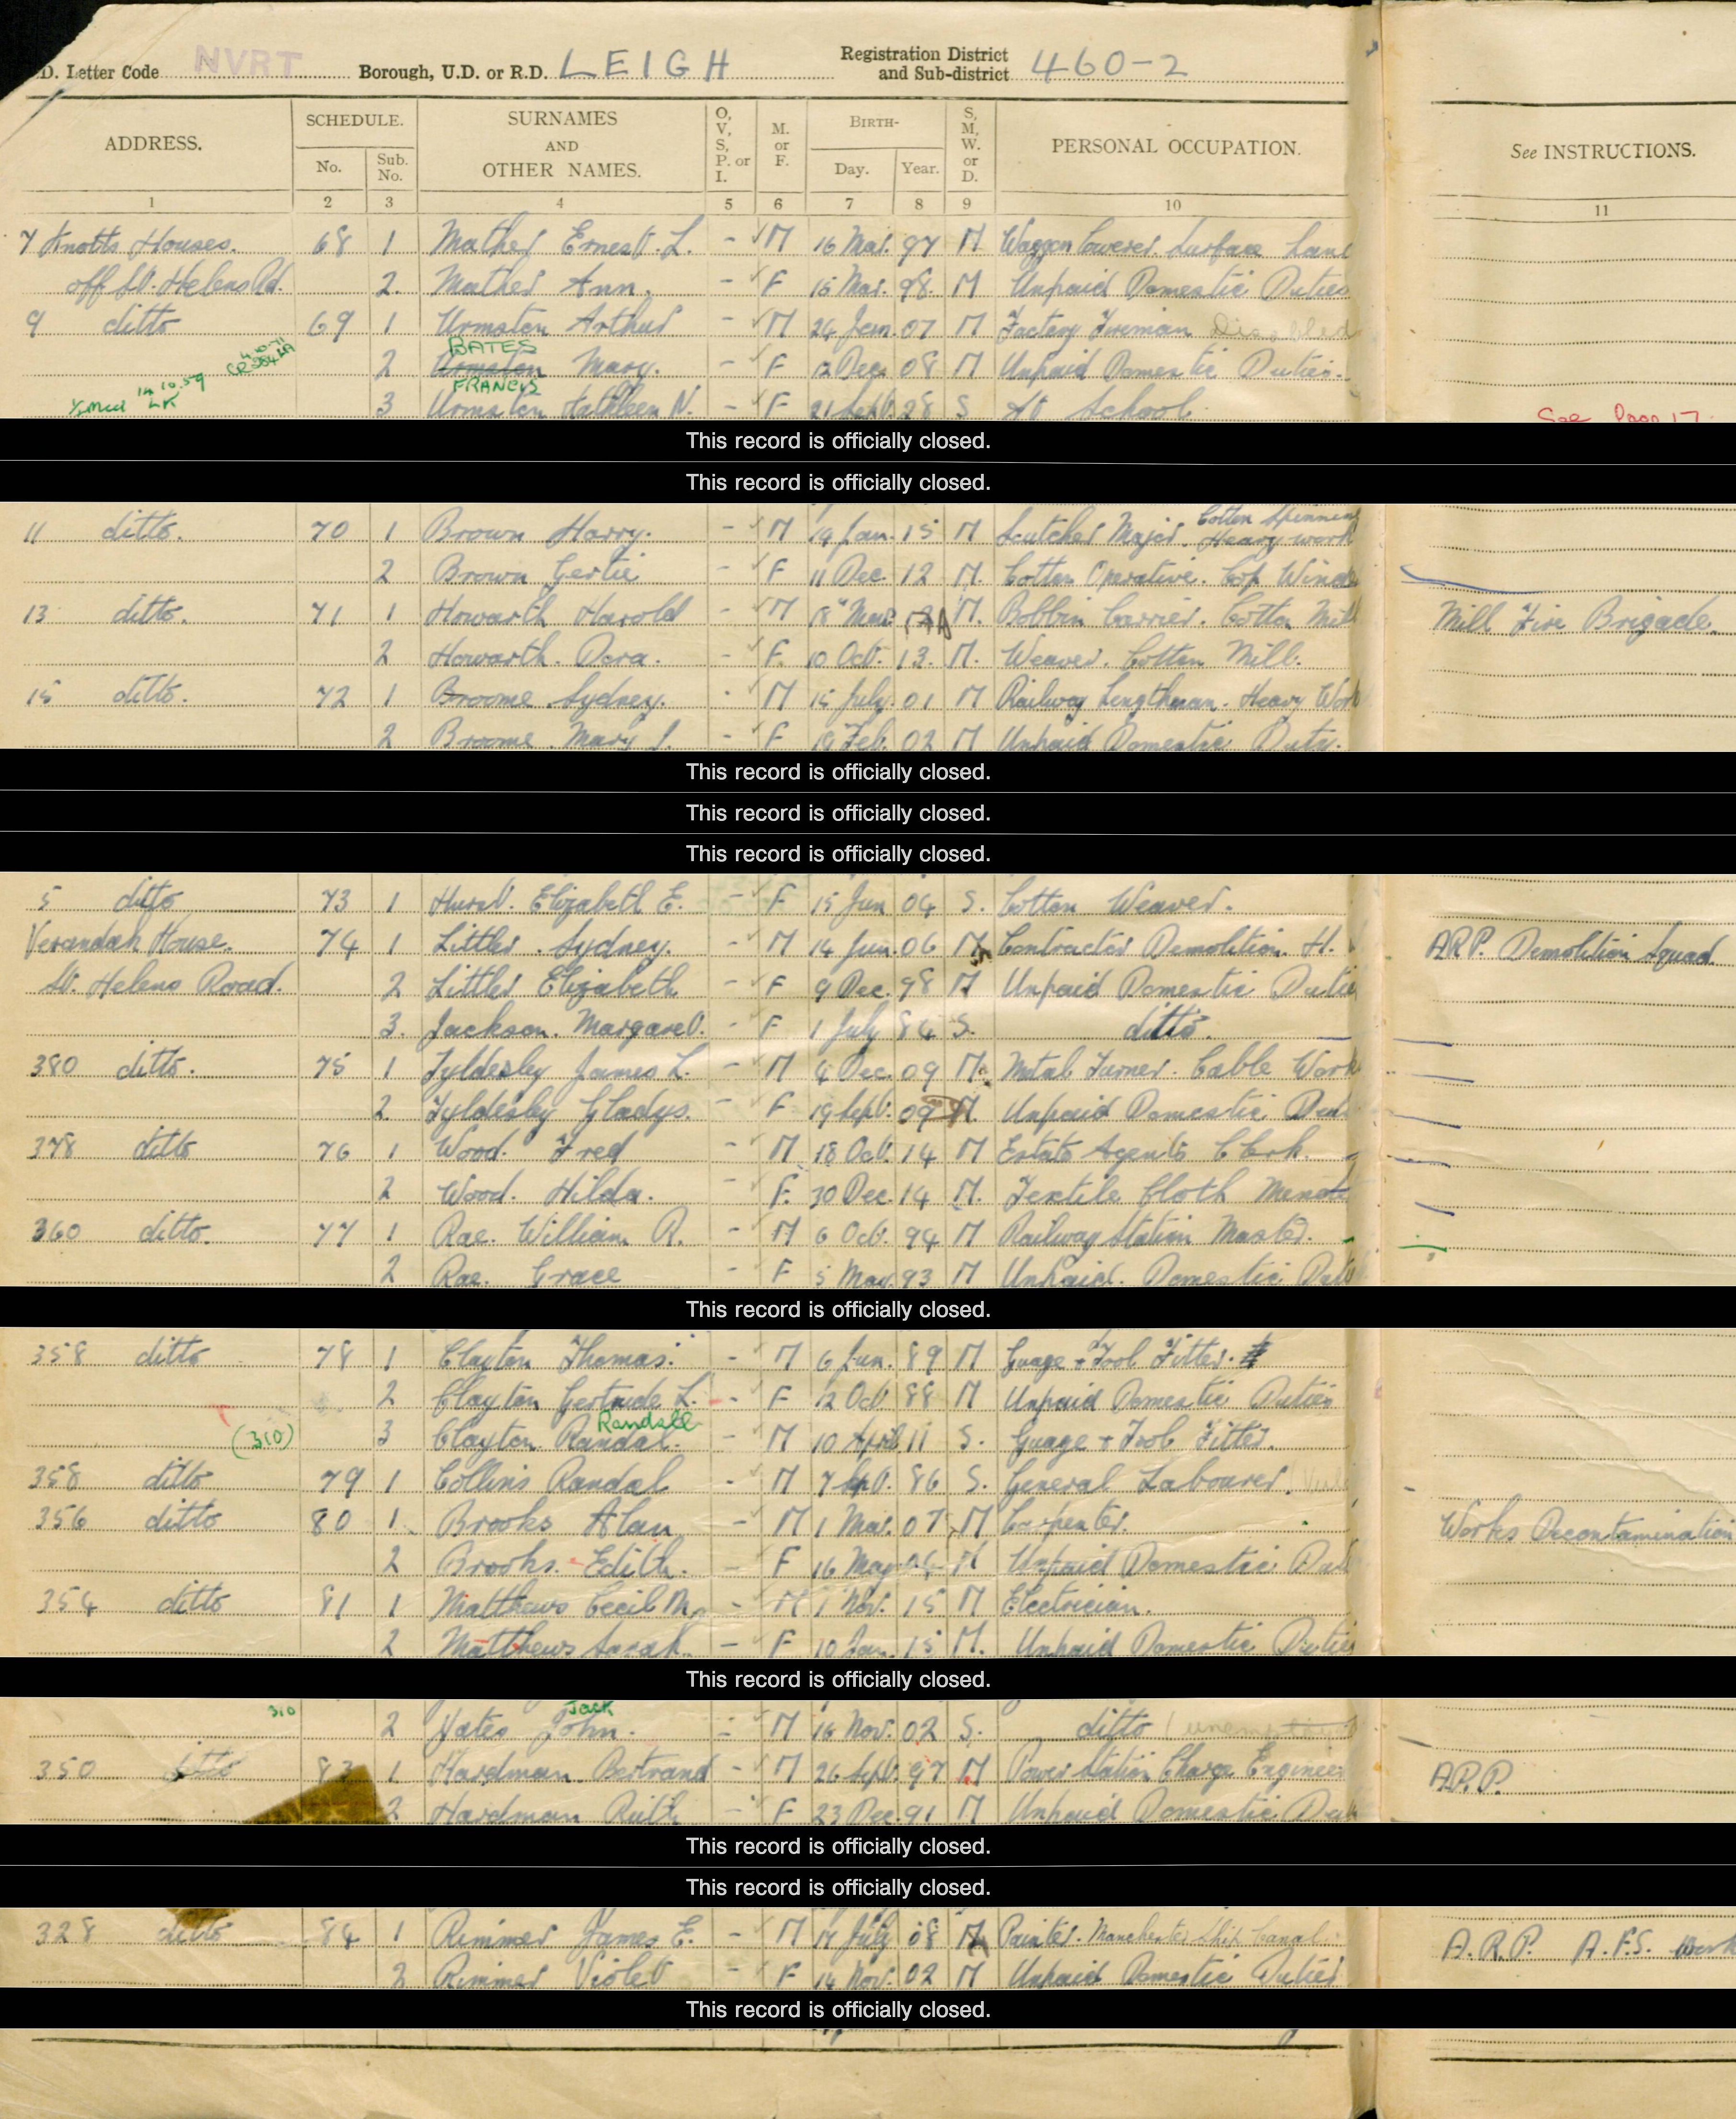 D. Letter Code NVRT Borough, U.D. or R.D. LEIGH Registration District and Sub-district 460-2
ADDRESS. SCHEDULE. No. Sub. No. SURNAMES AND OTHER NAMES. O, V, S, P. or I. M. or F. BIRTH- Day. Year. S, M, W. or D. PERSONAL OCCUPATION. See INSTRUCTIONS.
1 2 3 4 5 6 7 8 9 10 11
7 Knotts Houses. 68 1 Mather Ernest L. - M 16 Mar. 97 M Waggon Lowerer. Surface
off St. Helens Rd. 2. Mather Ann. - F 15 Mar. 98. M Unpaid Domestic Duties
9 ditto 69 1 Urmston Arthur - M 24 Jan. 07 M Factory Fireman Disabled
BATES
2 Urmston Mary. - F 12 Dec 08 M Unpaid Domestic Duties.
14.10.59 LK FRANCIS
3 Urmston Kathleen N. - F 21 Sept. 28 S At School.
See Page 17.
This record is officially closed.
This record is officially closed.
11 ditto. 70 1 Brown Harry. - M 19 Jan. 15 M Scutcher Major. Cotton Spinning Heavy work
2 Brown Gertie - F 11 Dec. 12 M. Cotton Operative. Cop Winder
13 ditto. 71 1 Howarth Harold - M 18 Mar. M. Bobbin Carrier. Cotton Mill Mill Fire Brigade.
2 Howarth. Dora. - F. 10 Oct. 13. M. Weaver. Cotton Mill.
15 ditto. 72 1 Broome Sydney. - M 15 July. 01 M Railway Lengthman. Heavy Work
2 Broome. Mary J. - F 18 Feb. 02 M Unpaid Domestic Duty.
This record is officially closed.
This record is officially closed.
This record is officially closed.
5 ditto 73 1 Hurst. Elizabeth E. - F 15 Jun 04 S. Cotton Weaver.
Verandah House. 74 1 Littler. Sydney. - M 14 Jun. 06 M Contractor Demolition. H. A.R.P. Demolition Squad
St. Helens Road. 2 Littler Elizabeth - F 9 Dec. 98 M Unpaid Domestic Duties
3. Jackson. Margaret. - F 1 July 84 S. ditto.
380 ditto. 75 1 Tyldesley James L. - M 4 Dec. 09 M. Metal Turner. Cable Work
2. Tyldesley Gladys. - F 19 Sept. 09 M Unpaid Domestic Dut
378 ditto 76 1 Wood. Fred - M 18 Oct. 14 M Estate Agents Clerk.
2 Wood. Hilda. - F. 30 Dec. 14 M. Textile Cloth
360 ditto. 77 1 Rae. William R. - M 6 Oct. 94 M Railway Station Master.
2 Rae. Grace - F 5 May. 93 M Unpaid. Domestic Duti
This record is officially closed.
358 ditto 78 1 Clayton Thomas. - M 6 Jun. 89 M Guage + Tool Fitter.
2 Clayton Gertrude L. - F 12 Oct. 88 M Unpaid Domestic Duties
Randall
(310) 3 Clayton Randal. - M 10 April 11 S. Guage + Tool Fitter.
358 ditto 79 1 Collins Randal - M 7 Sept. 86 S. General Labourer.
356 ditto 80 1. Brooks Alan - M 1 Mar. 07 M Carpenter. Works Decontamination
2 Brooks. Edith. - F 16 May M Unpaid Domestic Duti
354 ditto 81 1 Matthews Cecil M. - M 1 Nov. 15 M Electrician.
2 Matthews Sarah. - F 10 Jan. 15 M. Unpaid Domestic Duties
This record is officially closed.
310 Jack
2 Yates John. - M 16 Nov. 02 S. ditto
350 ditto 83 1 Hardman. Bertrand - M 26 Sept. 97 M Power Station Charge Engineer A.R.P.
2 Hardman Ruth - F 23 Dec. 91 M Unpaid Domestic Duti
This record is officially closed.
This record is officially closed.
328 ditto 84 1 Rimmer James E. - M 17 July 08 M Painter. Manchester Ship Canal. A.R.P. A.F.S. Work
2 Rimmer Violet - F 14 Nov. 02 M Unpaid Domestic Duties
This record is officially closed.